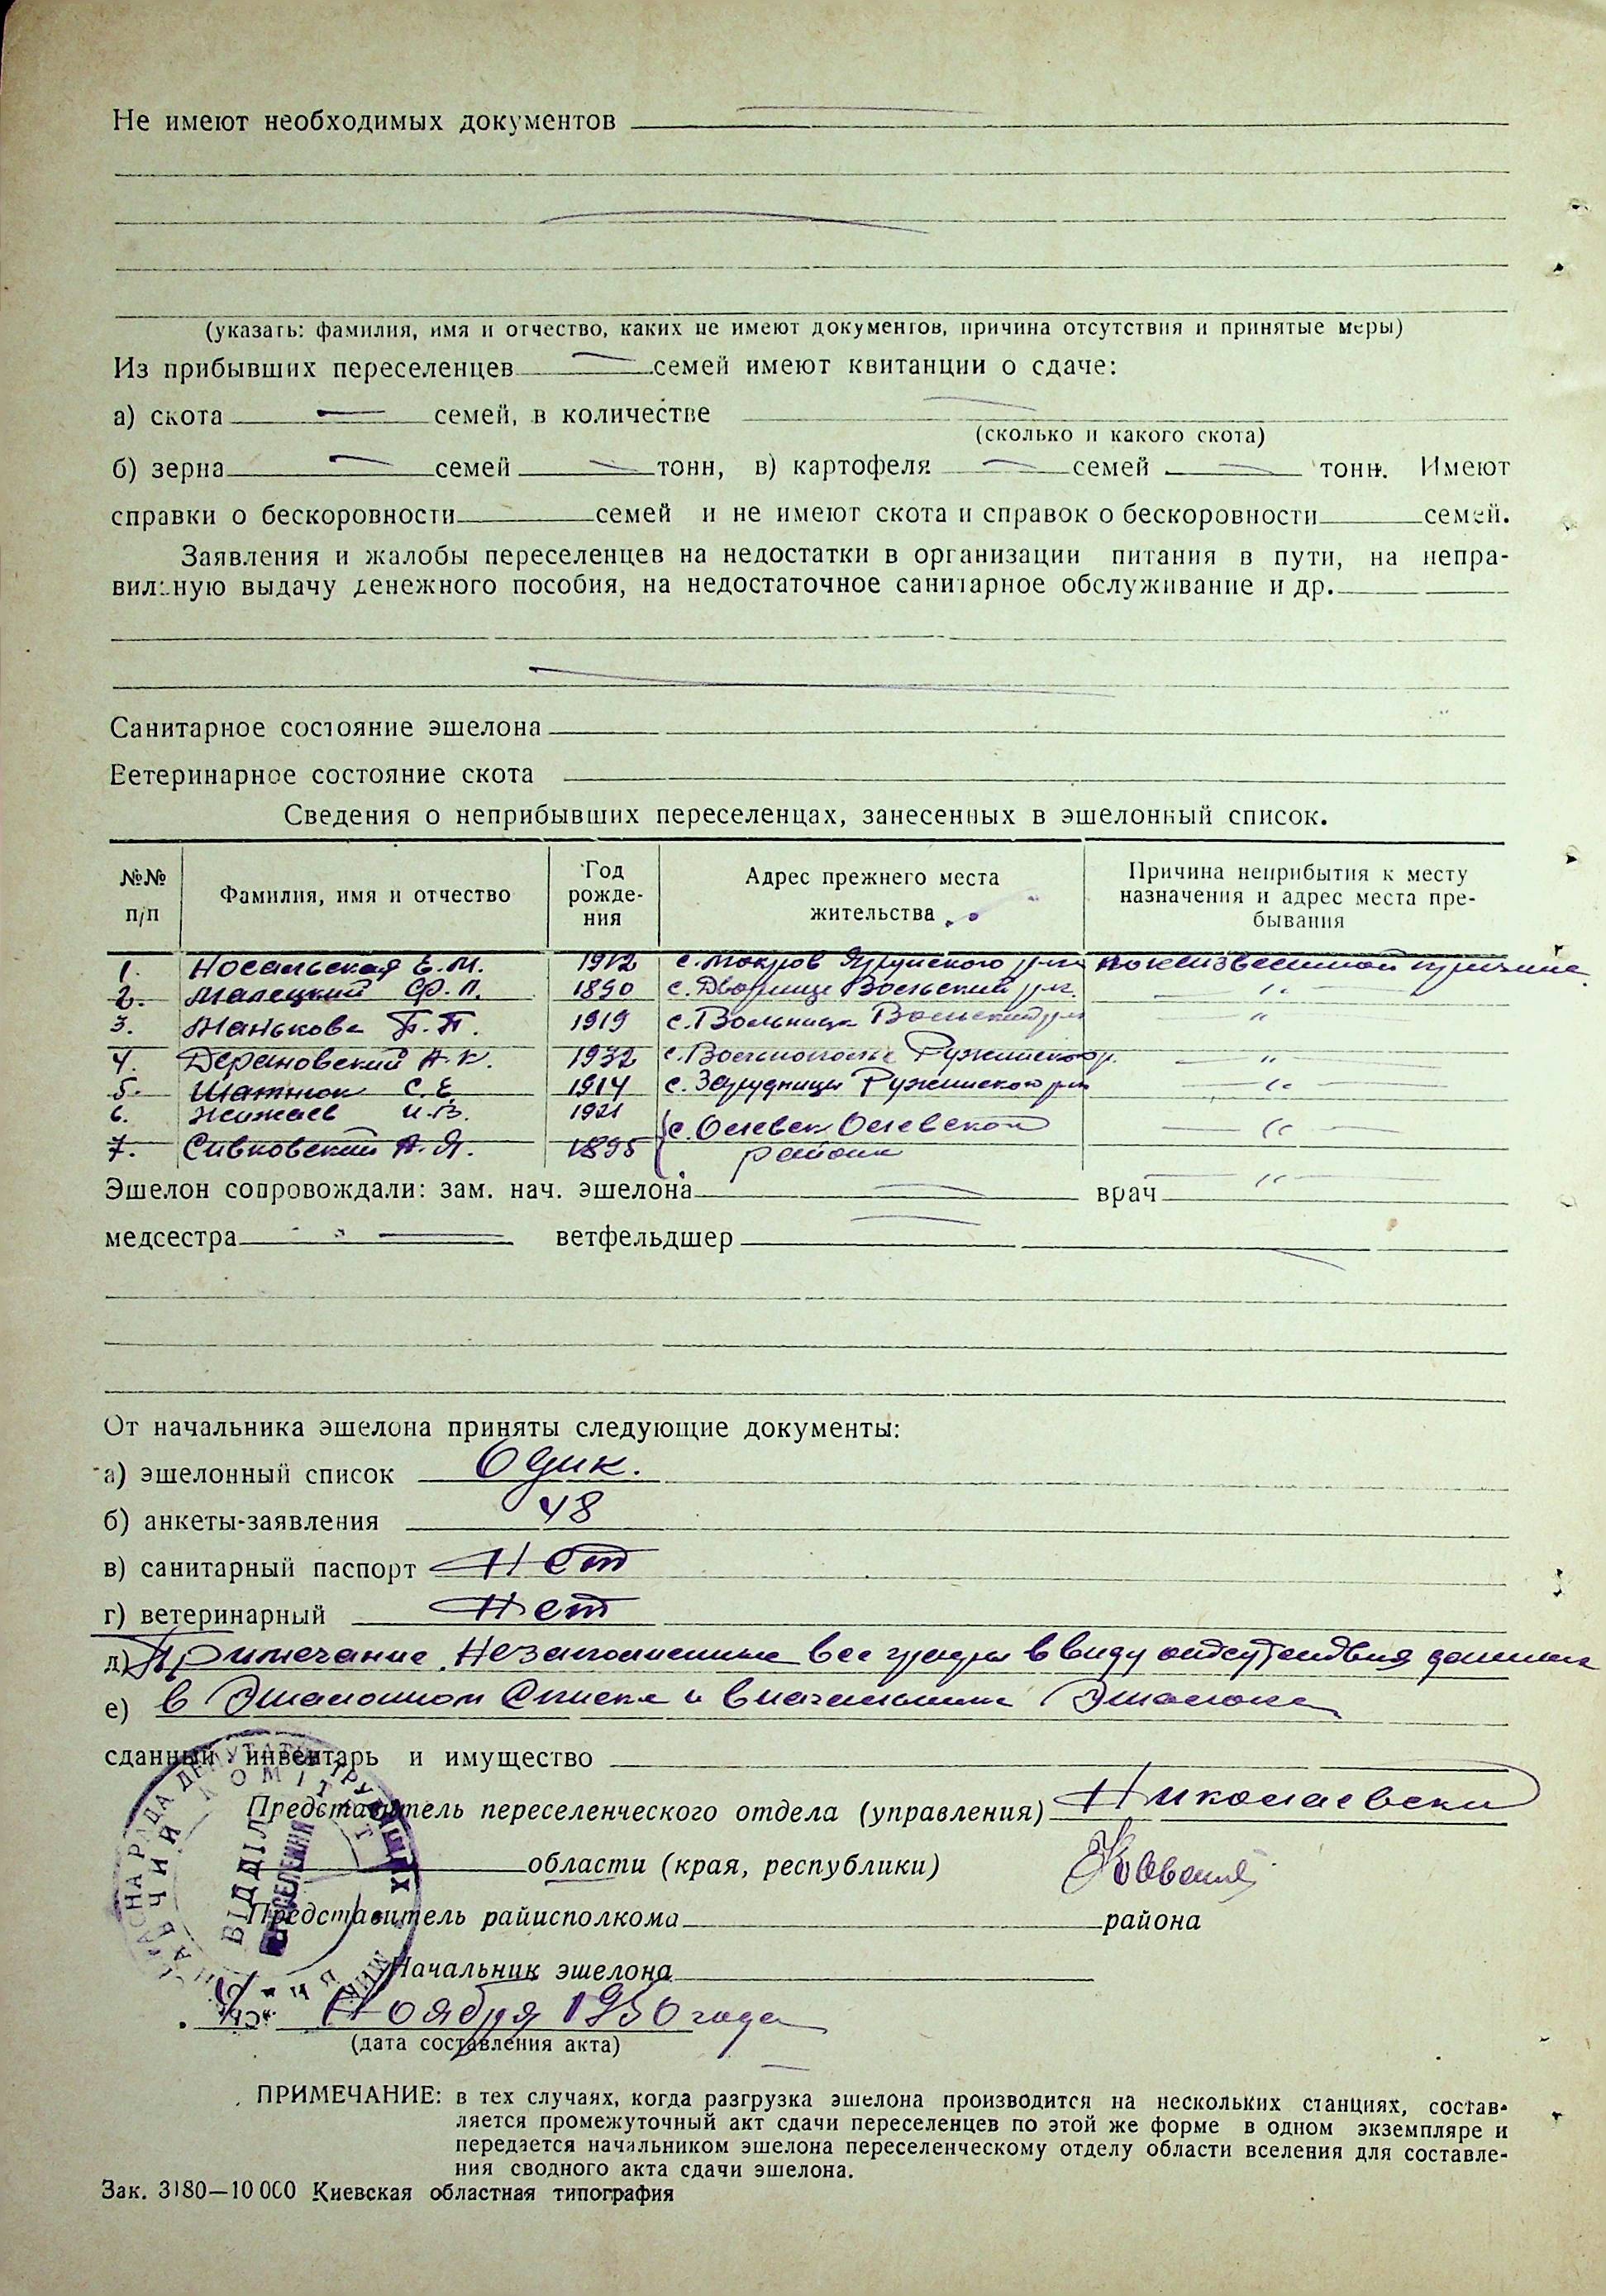 Не имеют необходимых документов
(указать: фамилия, имя и отчество, каких не имеют документов, причина отсутствия и принятые меры)
Из прибывших переселенцев — семей имеют квитанции о сдаче:
а) скота — семей, в количестве —
(сколько и какого скота)
б) зерна — семей — тонн, в) картофеля — семей — тонн. Имеют
справки о бескоровности семей и не имеют скота и справок о бескоровности семей.
Заявления и жалобы переселенцев на недостатки в организации питания в пути, на непра-
вильную выдачу денежного пособия, на недостаточное санитарное обслуживание и др.
Санитарное состояние эшелона
Ветеринарное состояние скота
Сведения о неприбывших переселенцах, занесенных в эшелонный список.
№№ п/п Фамилия, имя и отчество Год рожде-ния Адрес прежнего места жительства Причина неприбытия к месту назначения и адрес места пре-бывания
1. Носальская Е.М. 1912 с. по неизвестной причине
2. Малецкий Ф.П. 1890 с. Дворище — " —
3. Манькова П.П. 1919 с. — " —
4. Дерановский А.К. 1932 с. Ружинского р. — " —
5. Шатнюк С.Е. 1914 с. Зарудинцы Ружинского р-на — " —
6. И.В. 1921 с. Олевск Олевского — " —
7. Сивковский А.Я. 1895 района — " —
Эшелон сопровождали: зам. нач. эшелона — врач
медсестра — ветфельдшер —
От начальника эшелона приняты следующие документы:
а) эшелонный список Один.
б) анкеты-заявления 48
в) санитарный паспорт Нет
г) ветеринарный Нет
д) Примечание. Незаполненны все графы ввиду отсутствия данных
е) в Эшалонном Списке и Эшалона
сданный инвентарь и имущество
Представитель переселенческого отдела (управления)
области (края, республики)
Представитель райисполкома района
Начальник эшелона
Ноября 1950 года
(дата составления акта)
ВІДДІЛ
ПЕРЕСЕЛЕННЯ
ПРИМЕЧАНИЕ: в тех случаях, когда разгрузка эшелона производится на нескольких станциях, состав-
ляется промежуточный акт сдачи переселенцев по этой же форме в одном экземпляре и
передается начальником эшелона переселенческому отделу области вселения для составле-
ния сводного акта сдачи эшелона.
Зак. 3180—10 000 Киевская областная типография